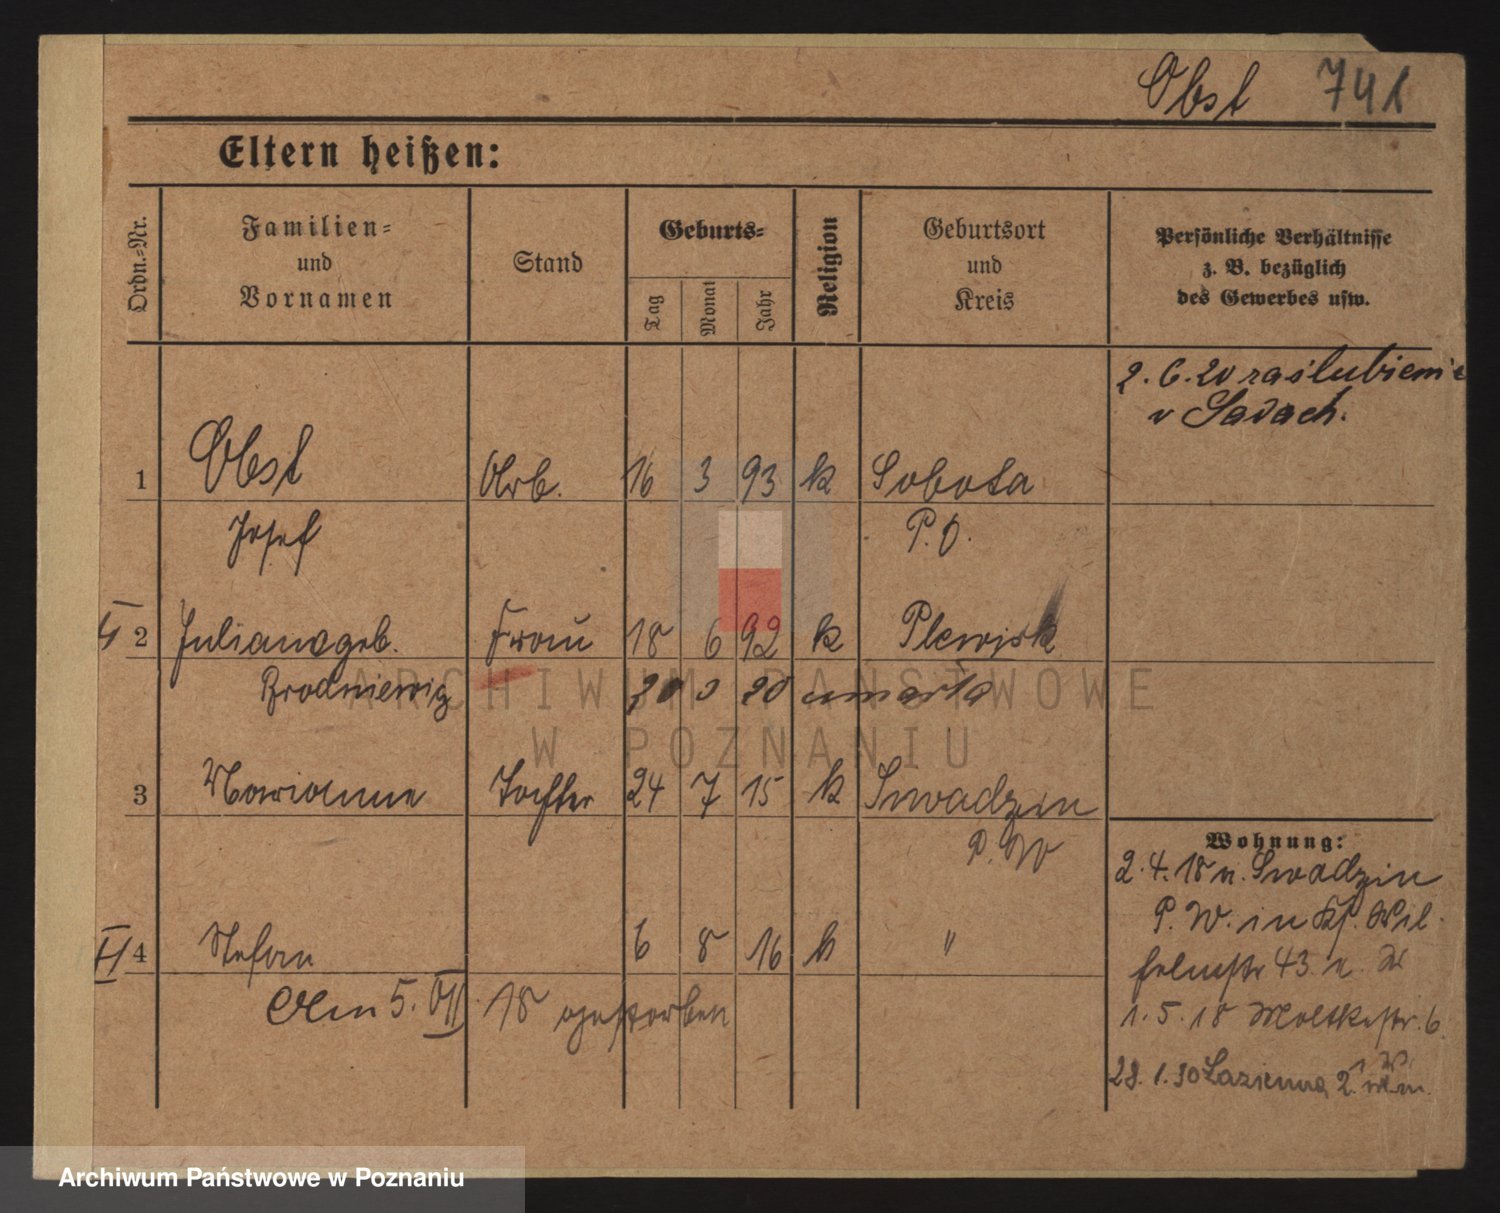 Obst 741
Eltern heißen:
Ordn.-Nr.
Familien-
und
Vornamen
Stand
Geburts-
Tag
Monat
Jahr
Religion
Geburtsort
und
Kreis
Persönliche Verhältnisse
z. B. bezüglich
des Gewerbes usw.
2. 6. 20 zaślubieni
v Sadach.
1 Obst Arb. 16 3 93 k Sobota
Josef P. O.
2 Juliana geb. Frau 18 6 92 k Plewisk
Brodniewicz 20 umarła
3 Marianne Tochter 24 7 15 k Swadzin
P. W
II 4 Stefan 6 8 16 k "
Am 5. VII 18 gestorben
Wohnung:
2. 4. 18 n. Swadzin
P. W. in Wil-
helmstr 43
1. 5. 18 Moltkestr. 6
28. 1. 30 Łazienna 2.
ARCHIWUM PAŃSTWOWE
W POZNANIU
Archiwum Państwowe w Poznaniu